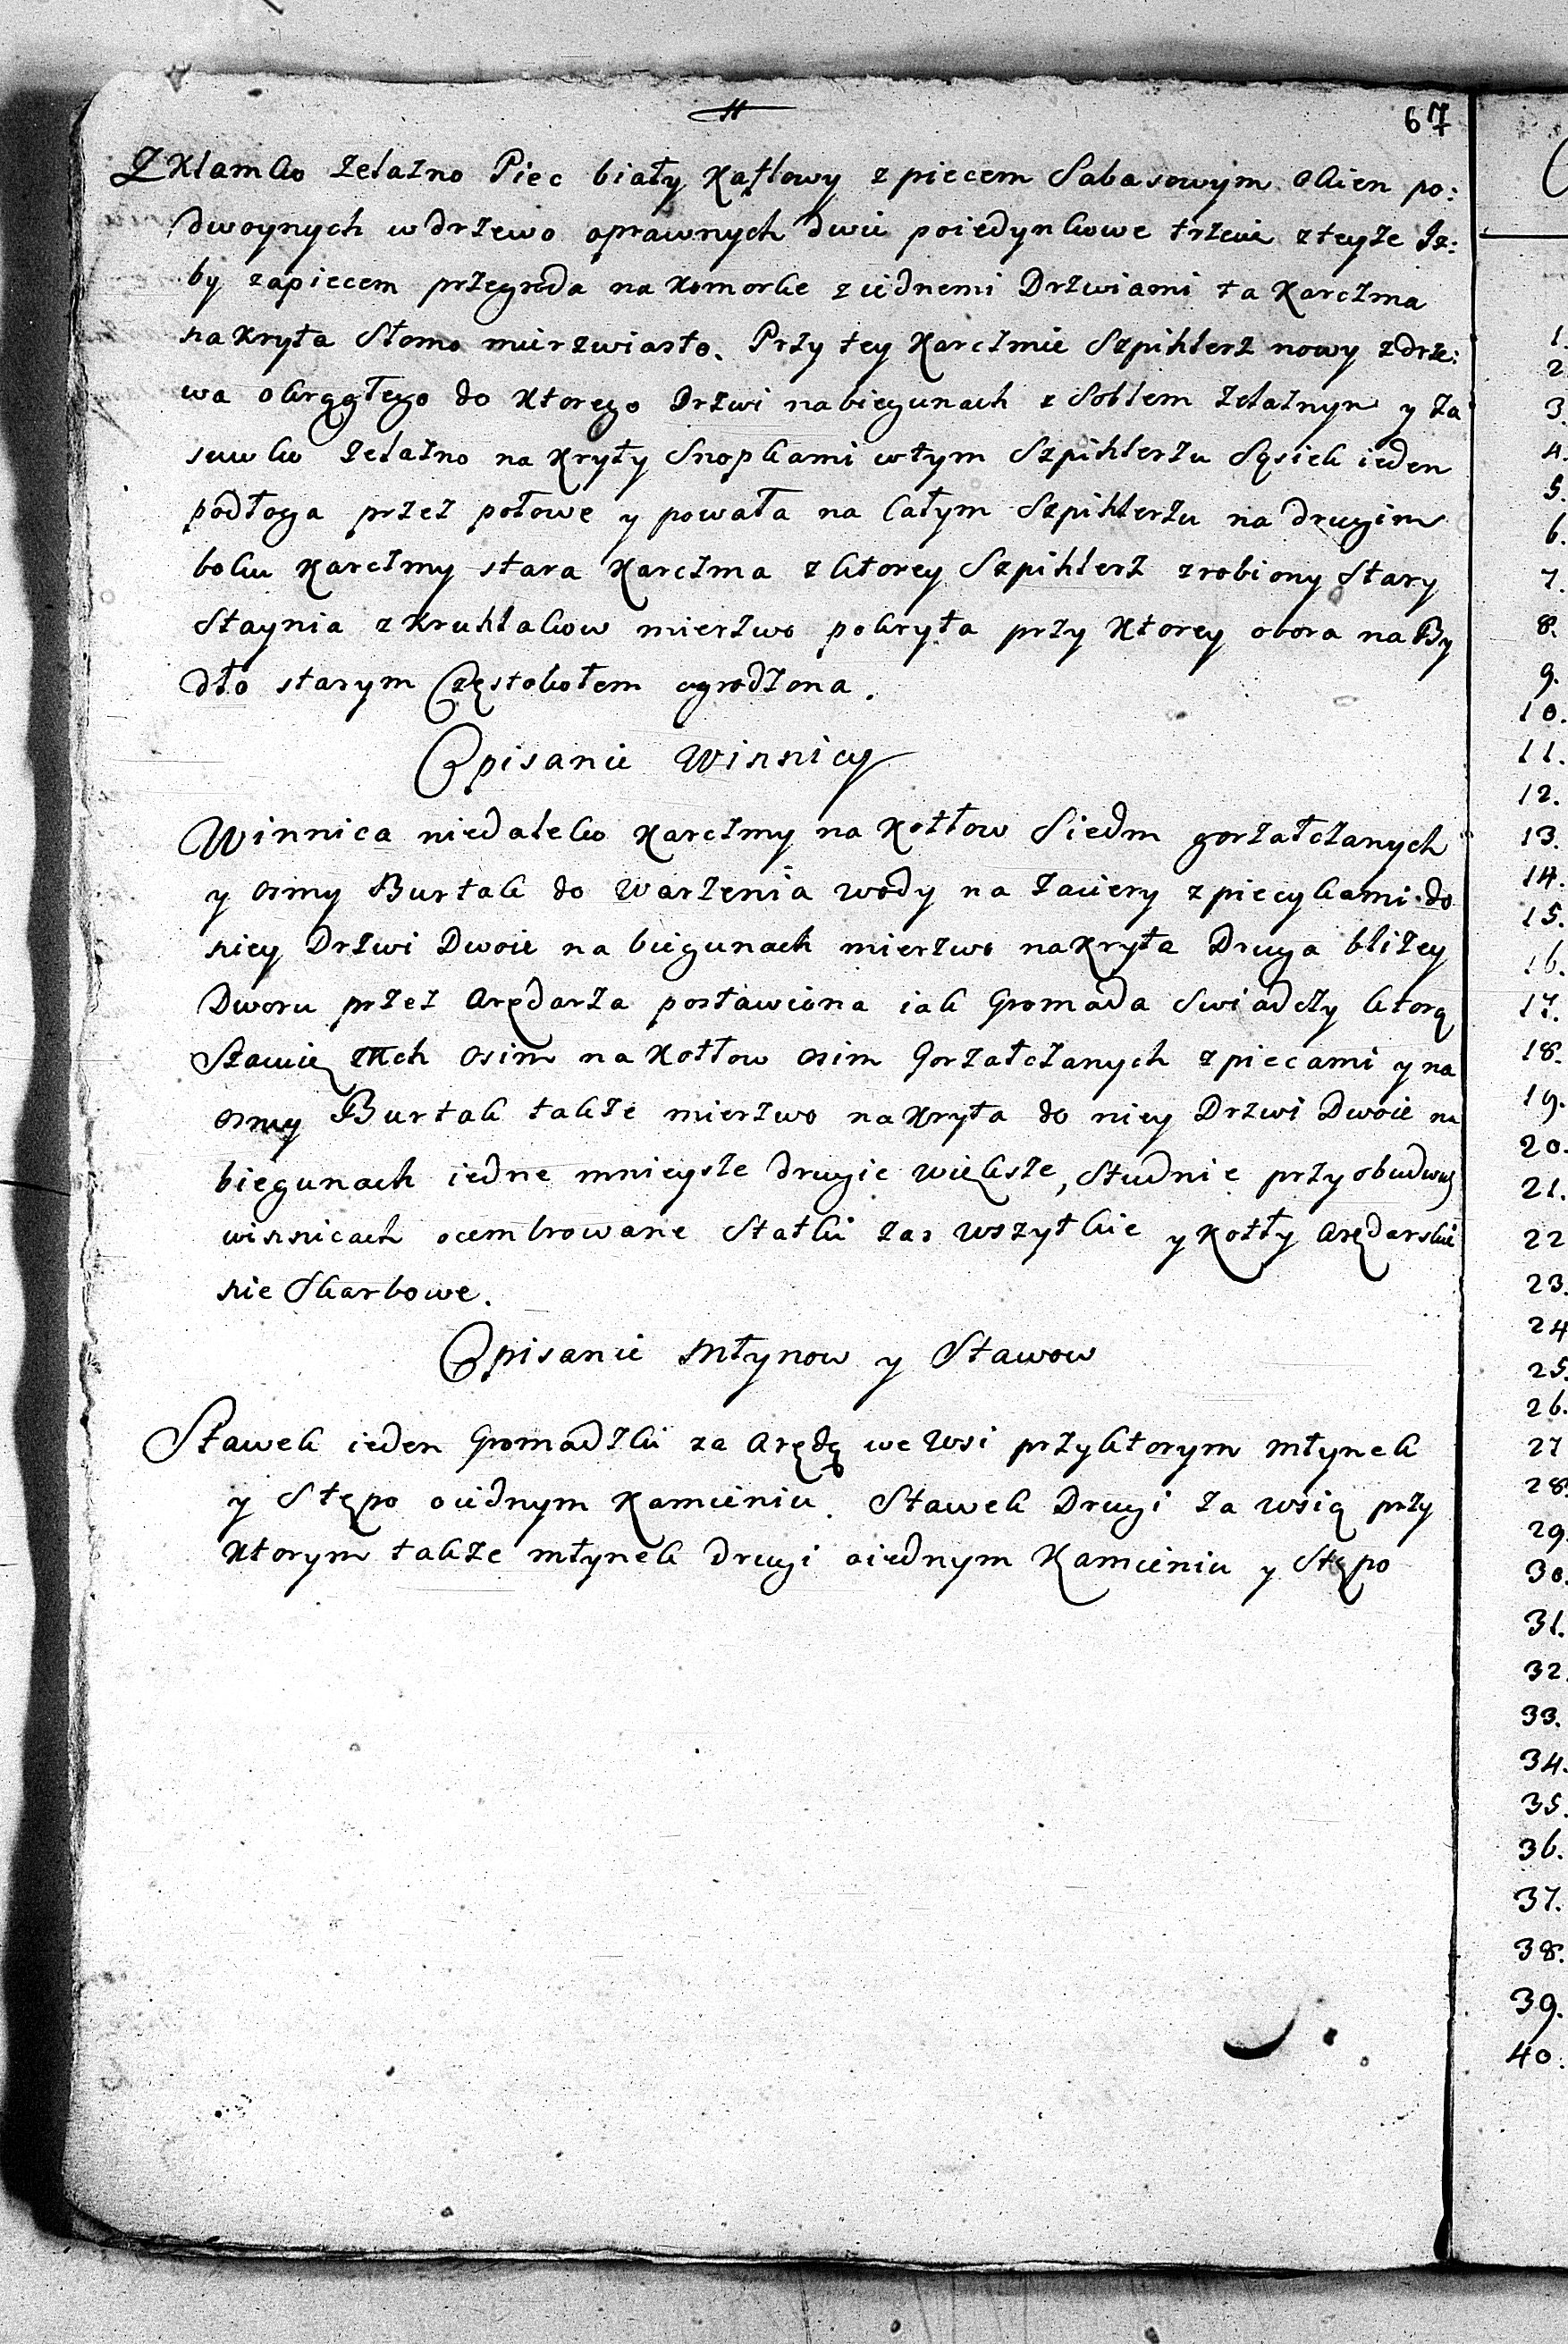 67
Z Klamko Żelazno Piec biały Kaflowy z piecem Sabasowym Okien po:
dwoynych w drzewo oprawnych dwie poiedynkowe trzecie z teyze Iz:
by zapiecem przegroda na Komorke z iednemi Drzwiami ta Karczma
nakryta Słomo mierzwiasto. Przy tey Karczmie Szpihlerz nowy z drze:
wa okrągłego do Ktorego Drzwi na biegunach z Soblem Żelaznym y Za
suwko Żelazno na Kryty Snopkami w tym Szpihlerzu Sąsiek ieden
podłoga przez połowe y powała na Całym Szpihlerzu na drugim
boku Karczmy stara Karczma z ktorey Szpihlerz zrobiony Stary
Staynia z Kruhlakow mierzwo pokryta przy Ktorey obora na By
dło starym Częstokołem ogrodzona.
Opisanie Winnicy
Winnica niedaleko Karczmy na Kotłow Siedm gorzałczanych
y osmy Burtak do Warzenia wody na Zaciery z piecykami do
niey Drzwi Dwoie na biegunach mierzwo nakryta Druga bliżey
Dworu przez Arędarza postawiona iak Gromada Swiadczy ktorą
Osim na Kotłow osim Gorzałczanych z piecami y na
osmy Burtak takze mierzwo na Kryta do niey Drzwi Dwoie na
biegunach iedne mnieysze drugie większe, Studnie przy obudwuch
winnicach ocembrowane Statki zas wszytkie y Kotły Arędarskie
nie Skarbowe.
Opisanie Młynow y Stawow
Stawek ieden Gromadzki za Arędą we Wsi przyktorym młynek
y Stępo o iednym Kamieniu. Stawek Drugi Za Wsią przy
Ktorym takze młynek drugi oiednym Kamieniu y Stępo
1.
2
3.
4.
5.
6.
7.
8.
9.
10.
11.
12.
13.
14.
15.
16.
17.
18.
19.
20.
21.
22
23.
24
25.
26.
27
28
29.
30.
31.
32
33.
34.
35.
36.
37.
38.
39.
40.